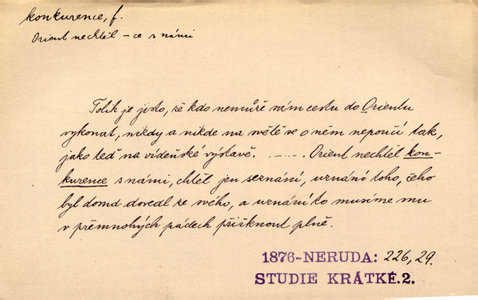 konkurence, f.
Orient nechtěl – ce s námi
Tolik je jisto, že kdo nemůže sám cestu do Orientu
vykonat, nikdy a nikde na světě se o něm nepoučí tak,
jako teď na vídeňské výstavě. . – . . . Orient nechtěl kon-
kurence s námi, chtěl jen seznání, uznání toho, čeho
byl doma dovedl ze svého, a uznání to musíme mu
v přemnohých pádech přisknout plně.
1876-NERUDA: 226,29.
STUDIE KRÁTKÉ.2.